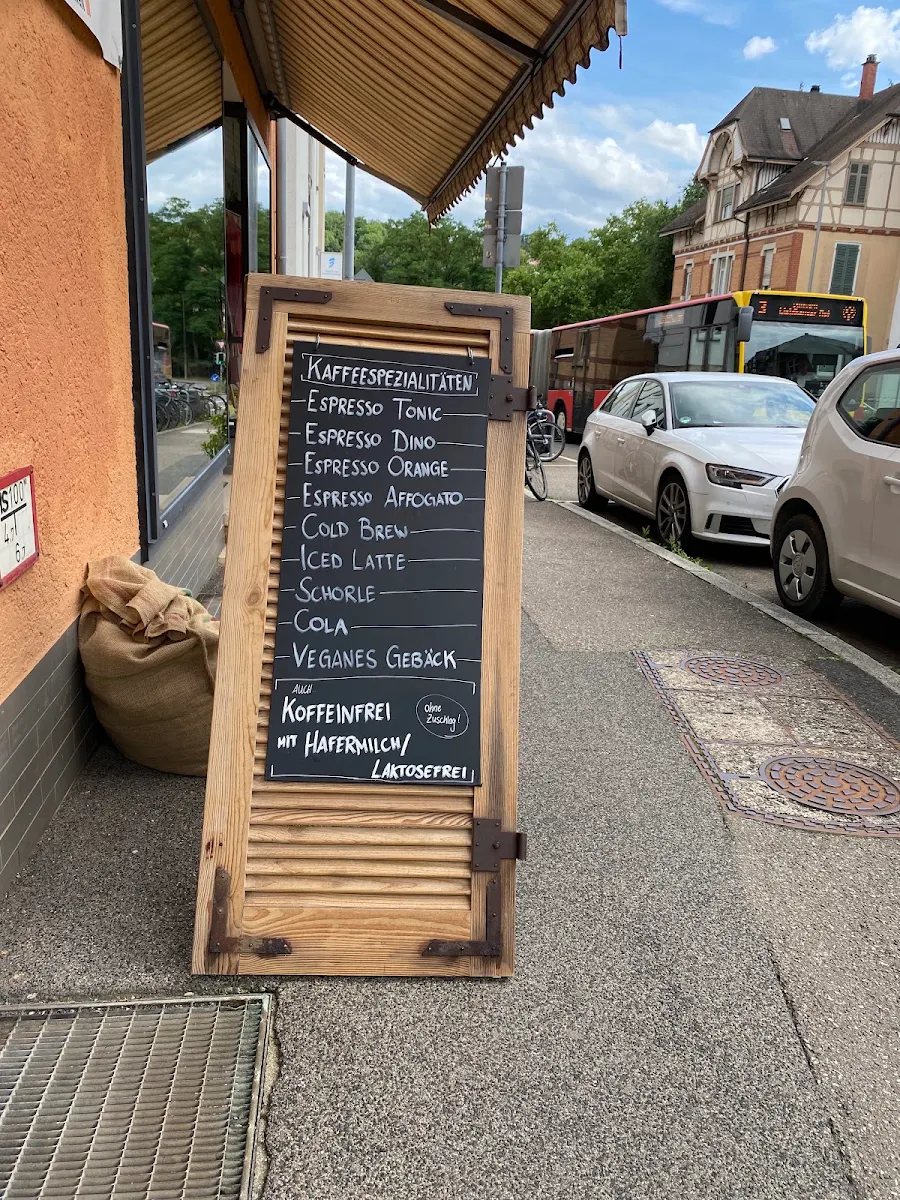 KAFFEESPEZIALITÄTEN
ESPRESSO TONIC
ESPRESSO DINO
ESPRESSO ORANGE
ESPRESSO AFFOGATO
COLD BREW
ICED LATTE
SCHORLE
COLA
VEGANES GEBÄCK
AUCH
KOFFEINFREI
ohne
Zuschlag!
MIT HAFERMILCH/
LAKTOSEFREI
3
S100
4,7
6,7